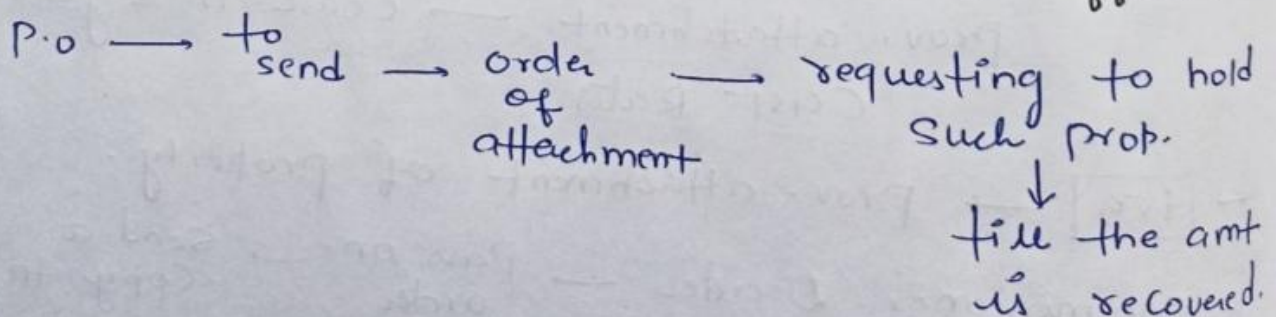 P.o → to send → order of attachment → requesting to hold such prop.
↓
till the amt is recovered.